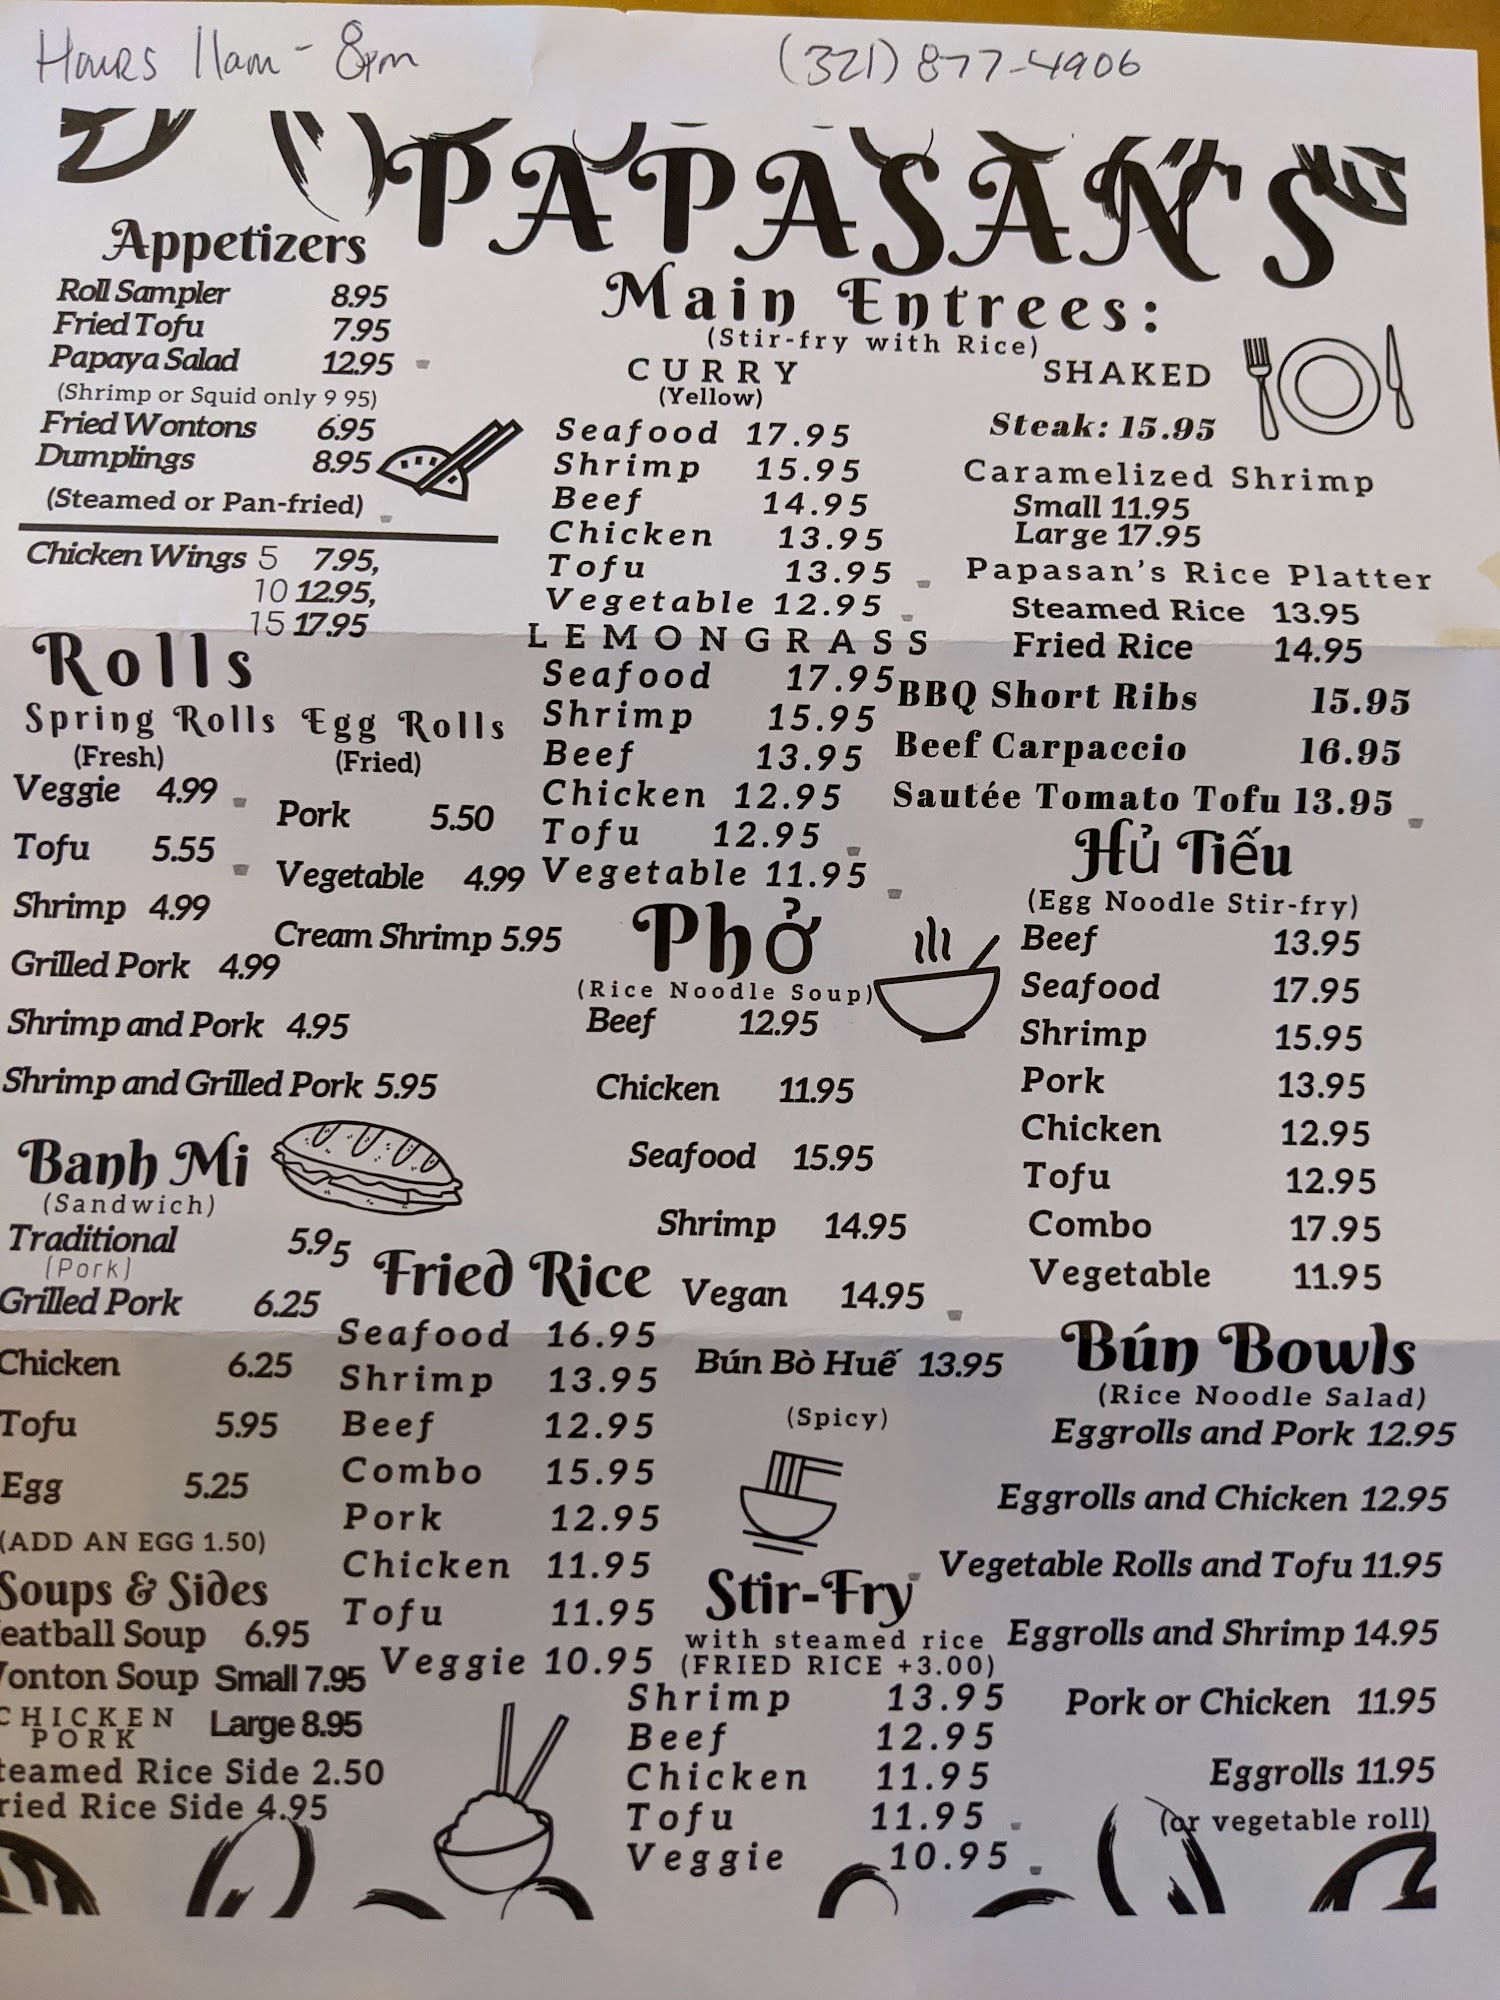 Hours 11am - 8pm
(321) 877-4906
PAPASAN'S
Appetizers
Roll Sampler 8.95
Fried Tofu 7.95
Papaya Salad 12.95
(Shrimp or Squid only 9 95)
Fried Wontons 6.95
Dumplings 8.95
(Steamed or Pan-fried)
Chicken Wings 5 7.95,
10 12.95,
15 17.95
Rolls
Spring Rolls
(Fresh)
Veggie 4.99
Tofu 5.55
Shrimp 4.99
Grilled Pork 4.99
Shrimp and Pork 4.95
Shrimp and Grilled Pork 5.95
Egg Rolls
(Fried)
Pork 5.50
Vegetable 4.99
Cream Shrimp 5.95
Banh Mi
(Sandwich)
Traditional 5.95
(Pork)
Grilled Pork 6.25
Chicken 6.25
Tofu 5.95
Egg 5.25
(ADD AN EGG 1.50)
Soups & Sides
eatball Soup 6.95
onton Soup Small 7.95
CHICKEN
PORK
Large 8.95
teamed Rice Side 2.50
ried Rice Side 4.95
Main Entrees:
(Stir-fry with Rice)
CURRY
(Yellow)
Seafood 17.95
Shrimp 15.95
Beef 14.95
Chicken 13.95
Tofu 13.95
Vegetable 12.95
LEMONGRASS
Seafood 17.95
Shrimp 15.95
Beef 13.95
Chicken 12.95
Tofu 12.95
Vegetable 11.95
SHAKED
Steak: 15.95
Caramelized Shrimp
Small 11.95
Large 17.95
Papasan's Rice Platter
Steamed Rice 13.95
Fried Rice 14.95
BBQ Short Ribs 15.95
Beef Carpaccio 16.95
Sautée Tomato Tofu 13.95
Phở
(Rice Noodle Soup)
Beef 12.95
Chicken 11.95
Seafood 15.95
Shrimp 14.95
Vegan 14.95
Bún Bò Huế 13.95
(Spicy)
Hủ Tiếu
(Egg Noodle Stir-fry)
Beef 13.95
Seafood 17.95
Shrimp 15.95
Pork 13.95
Chicken 12.95
Tofu 12.95
Combo 17.95
Vegetable 11.95
Fried Rice
Seafood 16.95
Shrimp 13.95
Beef 12.95
Combo 15.95
Pork 12.95
Chicken 11.95
Tofu 11.95
Veggie 10.95
Stir-Fry
with steamed rice
(FRIED RICE +3.00)
Shrimp 13.95
Beef 12.95
Chicken 11.95
Tofu 11.95
Veggie 10.95
Bún Bowls
(Rice Noodle Salad)
Eggrolls and Pork 12.95
Eggrolls and Chicken 12.95
Vegetable Rolls and Tofu 11.95
Eggrolls and Shrimp 14.95
Pork or Chicken 11.95
Eggrolls 11.95
(or vegetable roll)